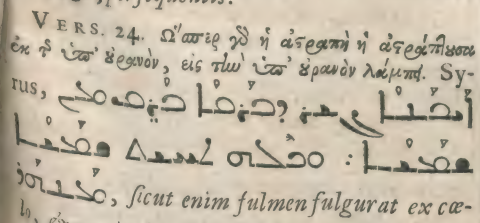 VERS. 24. Ὥσπερ γὸ ἡ ἀστραπὴ ἡ ἀστράπτουσα
ἐκ τ̃ ὑπ' οὐρανὸν, εἰς τὼ ὑπ' οὐρανὸν λάμπῃ. Sy-
rus, ܐܝܟܢܐ ܓܝܪ ܕܒܪܩܐ ܒܪܩ ܡܢ
ܫܡܝܐ : ܘܟܠܗ ܬܚܝܬ ܫܡܝܐ
ܡܢܗܪ, sicut enim fulmen fulgurat ex cœ-
lo,